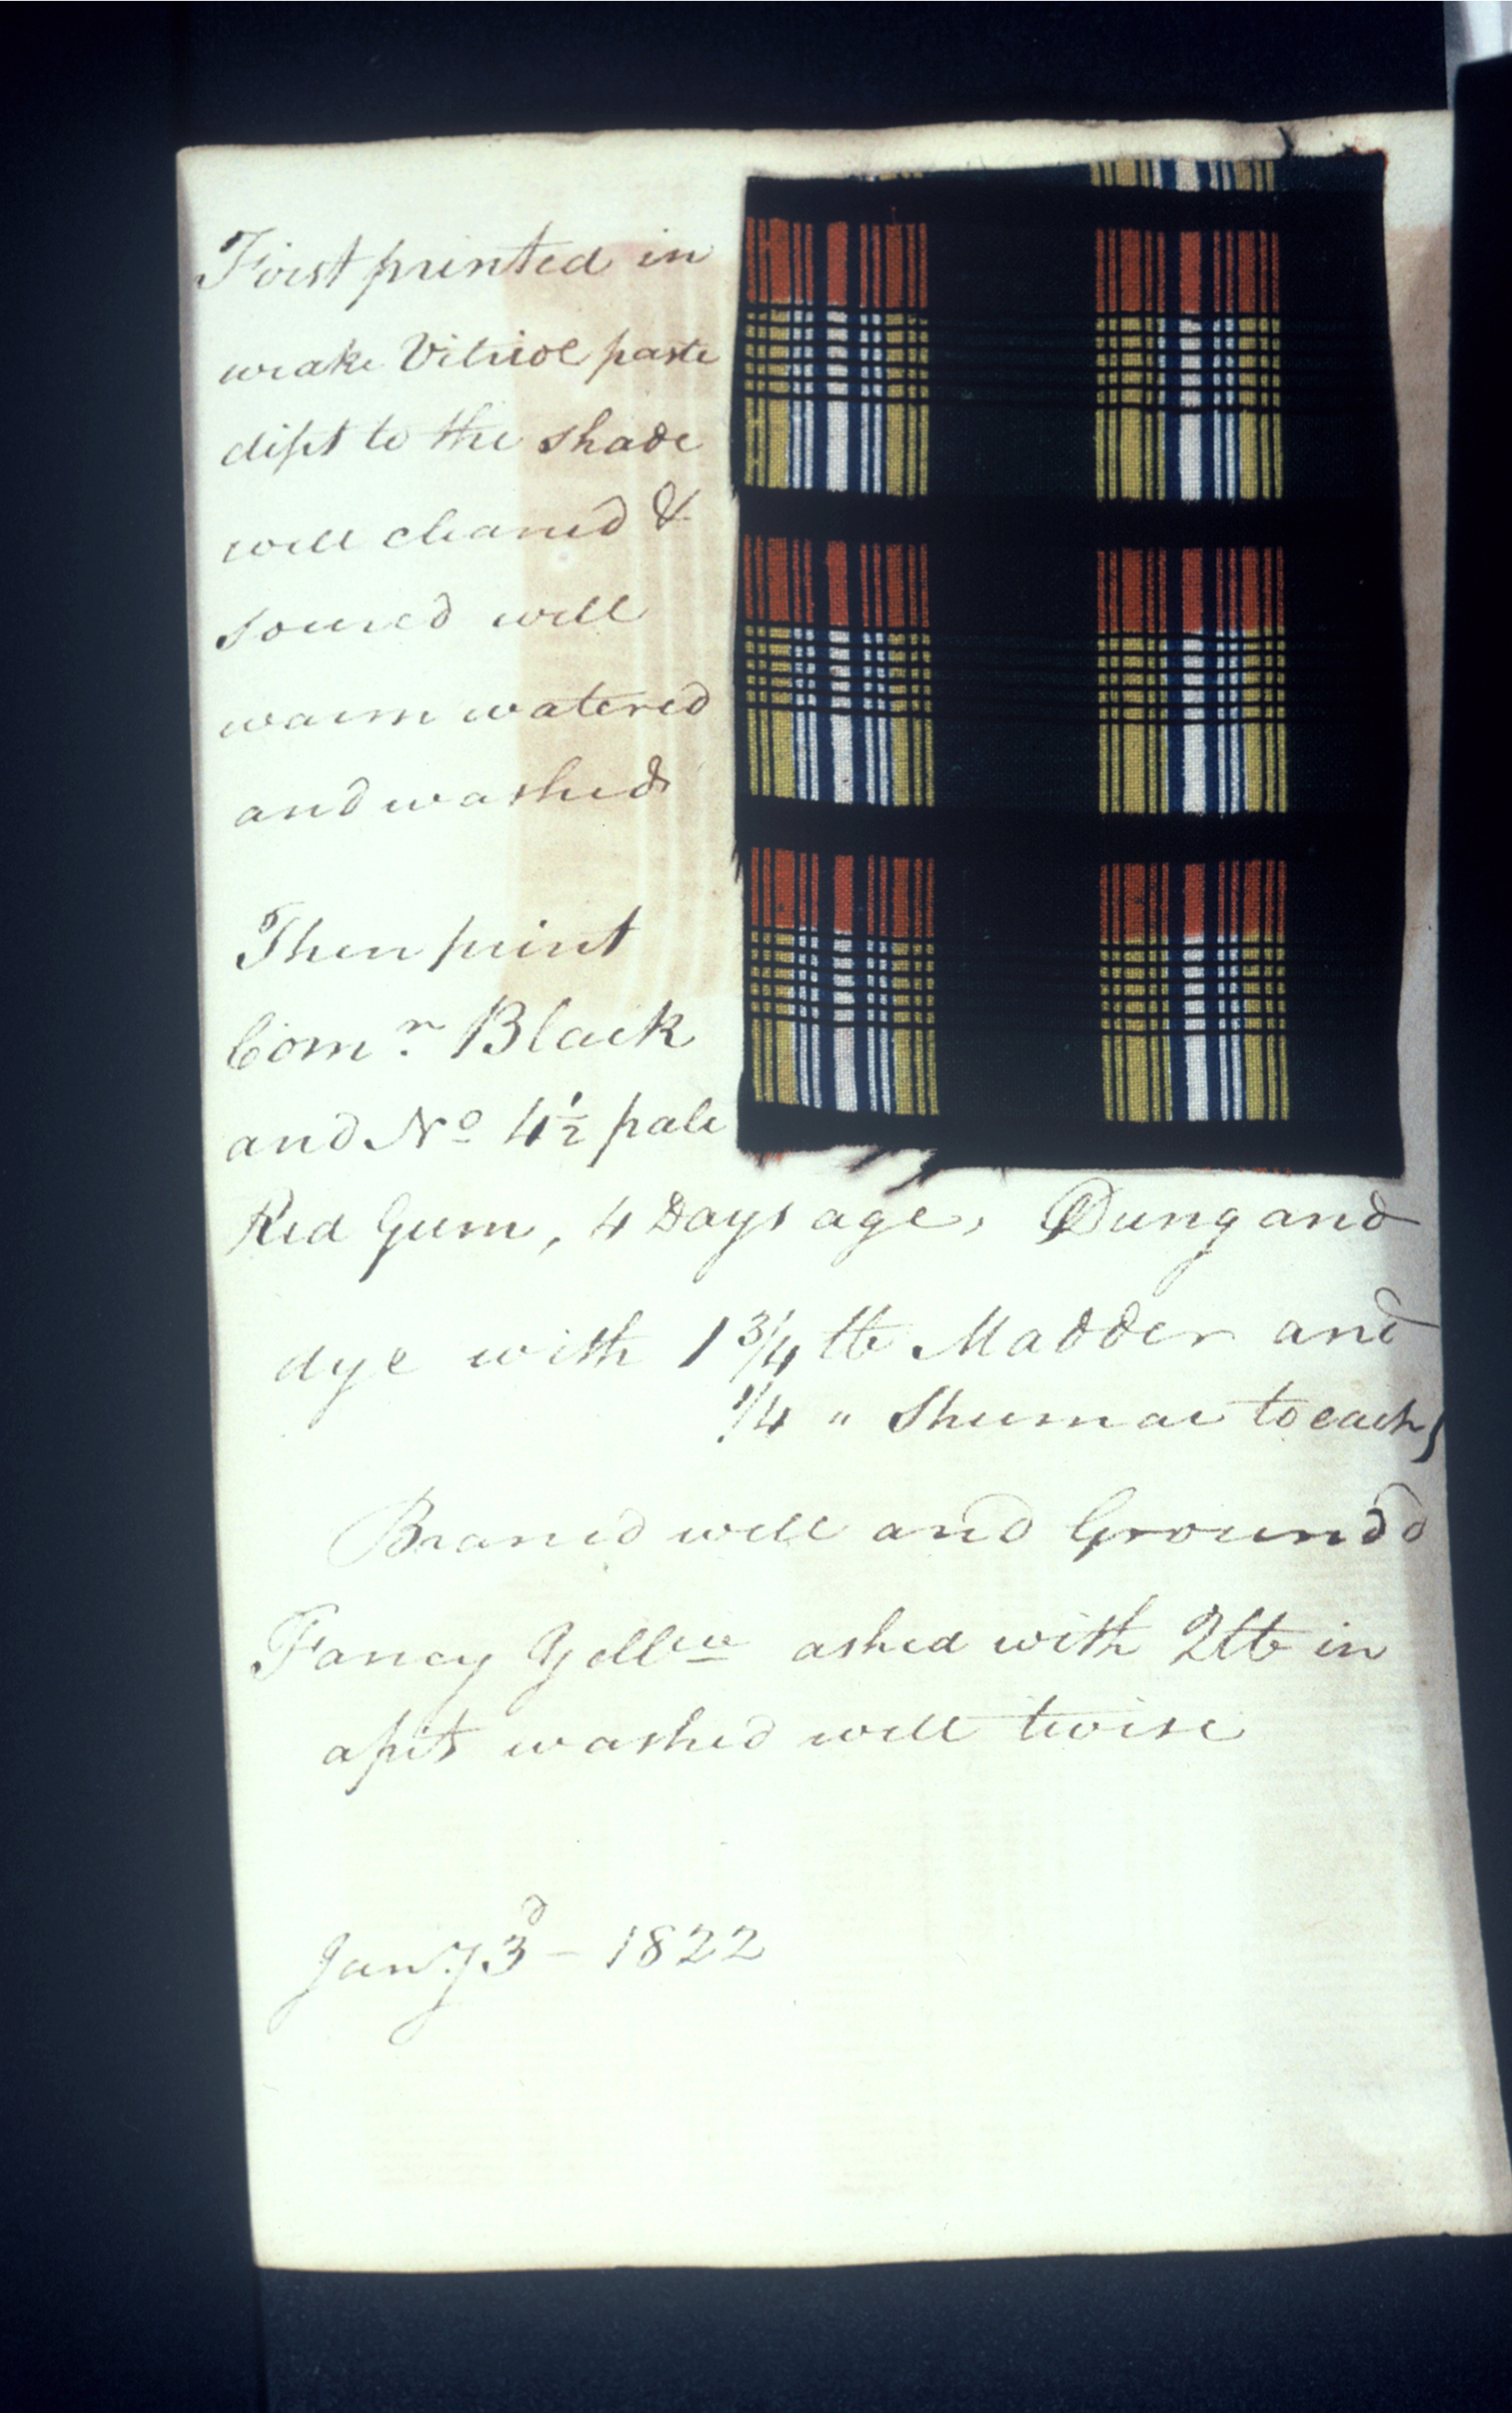 First printed in
weake Vitriol paste
dipt to the shade
well cleaned &
soured well
warm watered
and washed
Then print
Comn. Black
and No 4½ pale
Red Gum, 4 Days age, Dung and
dye with 1 3/4 lb Madder and
1/4 " Shumac to each,
Braned well and Groundd
Fancy Yellow ashed with 2lb in
apit washed well twise
Jany 3d - 1822